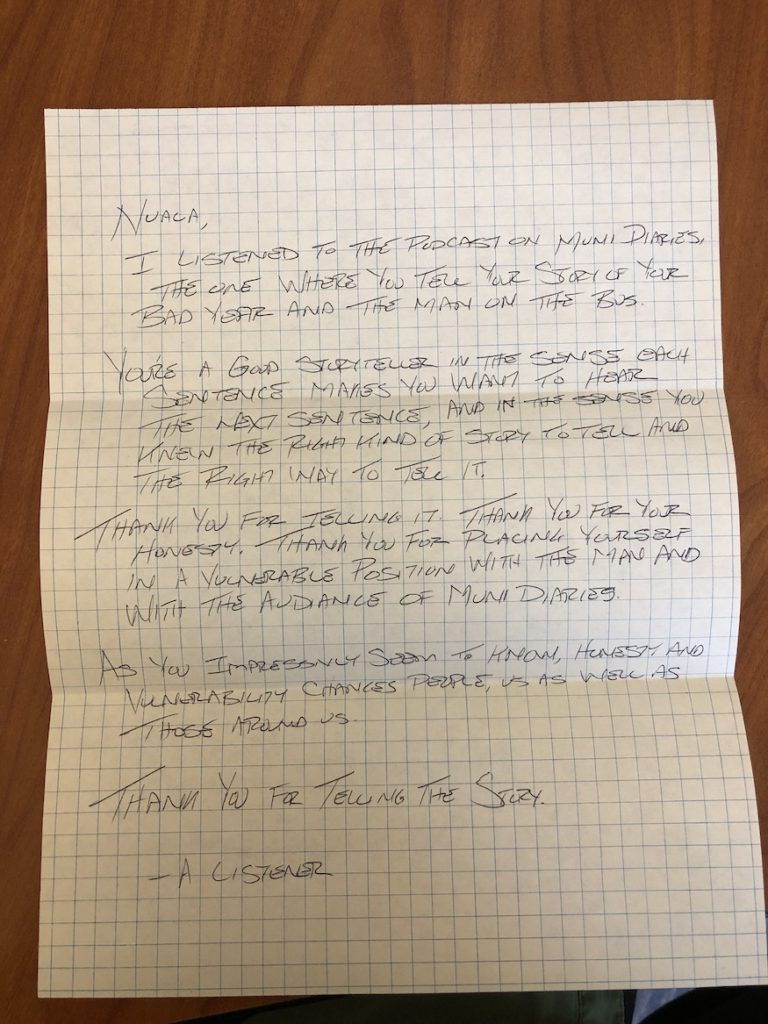 Nuala,
I listened to the podcast on Muni Diaries,
the one where you tell your story of your
bad year and the man on the bus.
You're a good storyteller in the sense each
sentence makes you want to hear
the next sentence, and in the sense you
knew the right kind of story to tell and
the right way to tell it.
Thank you for telling it. Thank you for your
honesty. Thank you for placing yourself
in a vulnerable position with the man and
with the audiance of Muni Diaries.
As you impressivly seem to know, honesty and
vulnerability changes people, us as well as
those around us.
Thank you for telling the story.
– A Listener